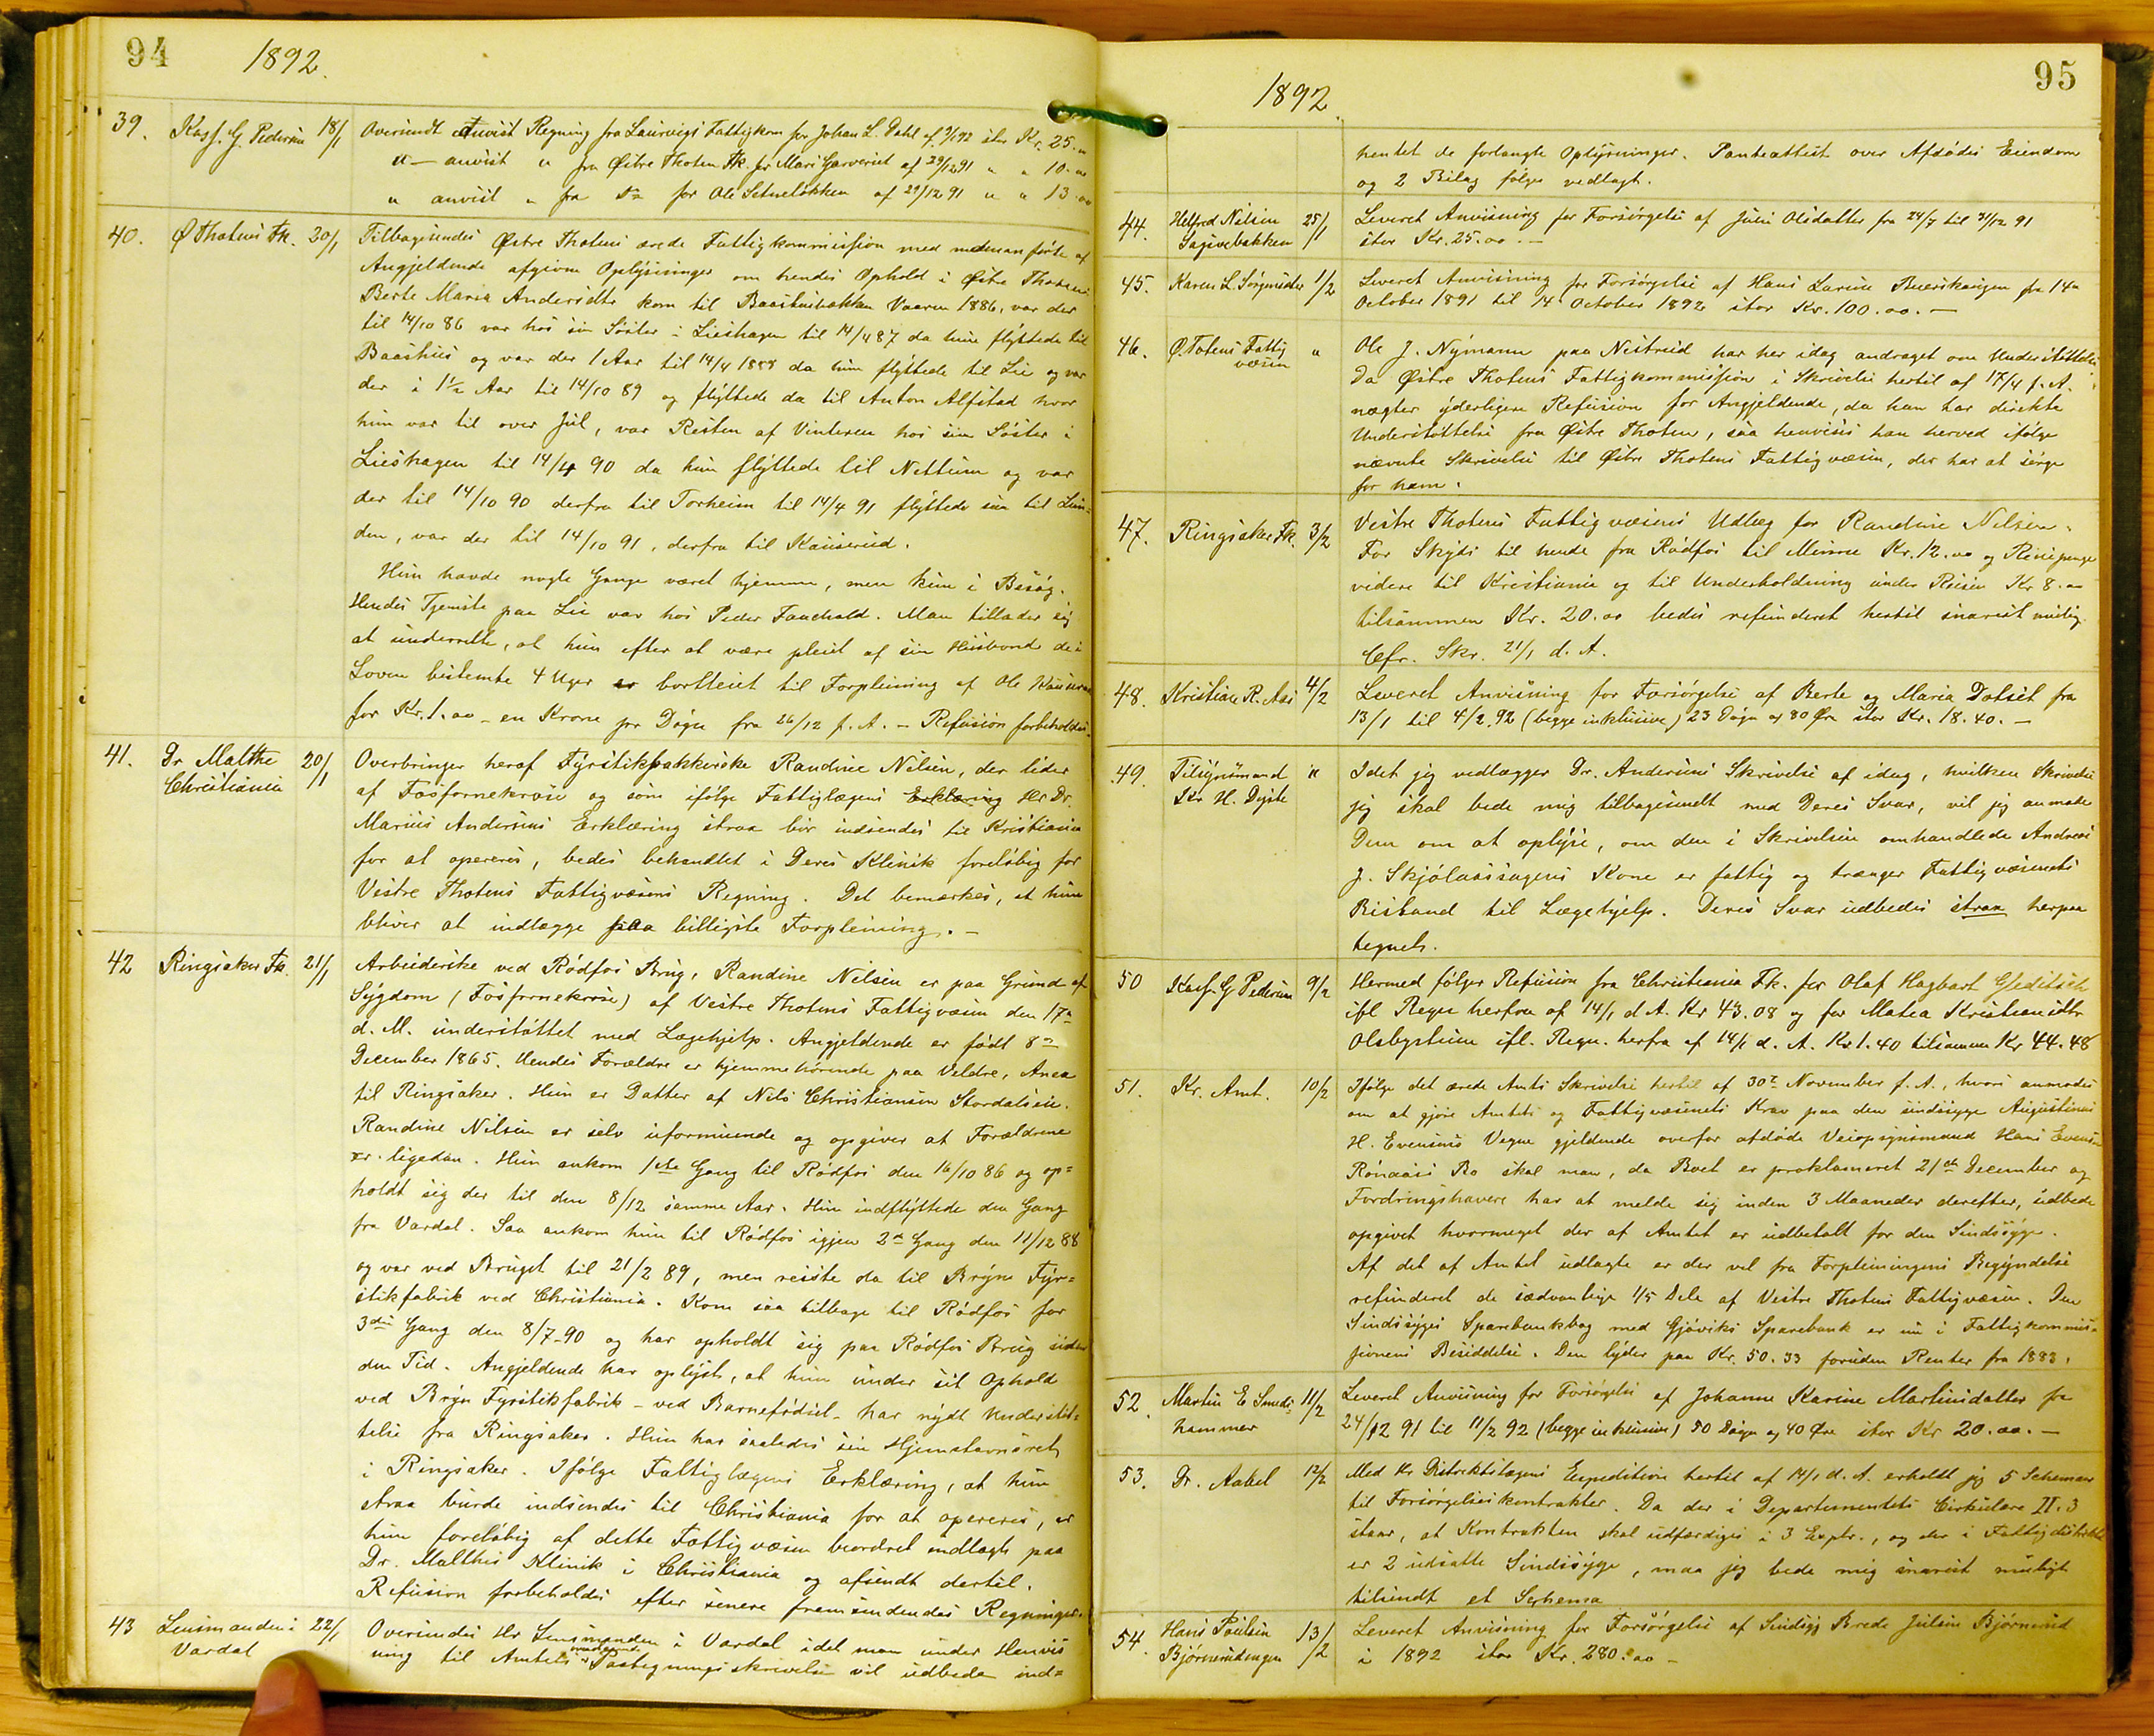 94
1892.
39. Kass. G. Pedersen 18/1 Oversendt Anvist Regning fra Laurvigs Fattigkom for Johan L. Dahl af 9/1 92 stor Kr. 25.„
„— anvist „ fra Østre Thoten Fk. for Mari Garveriet af 29/12 91 „ „ 10.oo
„ anvist „ fra do for Ole Setneløkken af 29/12 91 „ „ 13.oo
40. Ø Thotens Fk. 20/1 Tilbagesendes Østre Thotens ærede Fattigkommission med nedenanførte af
Angjeldende afgivne Oplysninger om hendes Ophold i Østre Thoten:
Berte Maria Andersdtr kom til Baashusbakken Vaaren 1886, var der
til 14/10 86 var hos sin Søster i Lieshagen til 14/4 87 da hun flyttede til
Baashus og var der 1 Aar til 14/4 1888 da hun flyttede til Lie og var
der i 1½ Aar til 14/10 89 og flyttede da til Anton Alfstad hvor
hun var til over Jul, var Resten af Vinteren hos sin Søster i
Lieshagen til 14/4 90 da hun flyttede til Nettum og var
der til 14/10 90 derfra til Torheim til 14/4 91 flyttede saa til Lun=
den, var der til 14/10 91, derfra til Kauserud.
Hun havde nogle Gange været hjemme, men kun i Besøg.
Hendes Tjeneste paa Lie var hos Peder Fauchald. Man tillader sig
at underrette, at hun efter at være pleiet af sin Husbond de i
Loven bestemte 4 Uger er bortleiet til Forpleining af Ole
for Kr. 1.oo – en Krone pr Døgn fra 26/12 f. A. – Refusion forbeholdes.
41. Dr Malthe 20/1 Overbringer heraf Fyrstikpakkerske Randine Nilsen, der lider
Christiania af Fosfornekrose og som ifølge Fattiglægens Erklæring Hr Dr.
Marius Andersens Erklæring strax bør indsendes til Kristiania
for at opereres, bedes behandlet i Deres Klinik foreløbig for
Vestre Thotens Fattigvæsens Regning. Det bemærkes, at hun
bliver at indlægge paa billigste Forpleining. –
42 Ringsaker Fk. 21/1 Arbeiderske ved Rødfos Brug, Randine Nilsen er paa Grund af
Sygdom (Fosfornekrose) af Vestre Thotens Fattigvæsen den 17de
d. M. understøttet med Lægehjelp. Angjeldende er født 8de
December 1865. Hendes Forældre er hjemmehørende paa Veldre, Anex
til Ringsaker. Hun er Datter af Nils Christiansen Stordalsen.
Randine Nilsen er selv uformuende og opgiver at Forældrene
er ligedan. Hun ankom 1ste Gang til Rødfos den 16/10 86 og op=
holdt sig der til den 8/12 samme Aar. Hun indflyttede den Gang
fra Vardal. Saa ankom hun til Rødfos igjen 2den Gang den 11/12 88
og var ved Bruget til 21/2 89, men reiste da til Bryns Fyr=
stikfabrik ved Christiania. Kom saa tilbage til Rødfos for
3die Gang den 8/7-90 og har opholdt sig paa Rødfos Brug siden
den Tid. Angjeldende har oplyst, at hun under sit Ophold
ved Bryn Fyrstikfabrik – ved Barnefødsel – har nydt Understøt=
telse fra Ringsaker. Hun har saaledes sin Hjemstavnsret
i Ringsaker. Ifølge Fattiglægens Erklæring, at hun
strax burde indsendes til Christiania for at opereres, er
hun foreløbig af dette Fattigvæsen beordret indlagt paa
Dr. Malthes Klinik i Christiania og afsendt dertil.
Refusion forbeholdes efter senere fremsendendes Regninger.
43 Lensmanden i 22/1 Oversendes Hr Lensmanden i Vardal idet man under Henvis
Vardal ning til Amtets Paategningsskrivelse vil udbede ind=
95
1892
hentet de forlangte Oplysninger. Panteattest over Afdødes Eiendom
og 2 Bilag følger vedlagt.
44. Helfred Nilsen 25/1 Leveret Anvisning for Forsørgelse af Juli Olsdatter fra 24/7 til 31/12 91
Sagvebakken stor Kr. 25.oo. –
45. Karen L. Sørgmister 1/2 Leveret Anvisning for Forsørgelse af Hans Larsen fra 14de
October 1891 til 14 October 1892 stor Kr. 100.oo. –
46. Ø. Totens Fattig „ Ole J. Nymann paa Nistreid har her idag andraget om Understøttelse
væsen Da Østre Thotens Fattigkommission i Skrivelse hertil af 17/4 f. A.
nægter yderligere Refusion for Angjeldende, da han har direkte
Understøttelse fra Østre Thoten, saa henvises han herved ifølge
nævnte Skrivelse til Østre Thotens Fattigvæsen, der har at sørge
for ham.
47. Ringsaker Fk. 3/2 Vestre Thotens Fattigvæsens Udlæg for Randine Nilsen.
For Skyds til hende fra Rødfos til Minne Kr. 12.oo og Reisepenge
videre til Kristiania og til Underholdning under Reisen Kr 8.oo
tilsammen Kr. 20.oo bedes refunderet hertil snarest mulig.
Cfr. Skr. 21/1 d. A.
48. Kristian R. Aas 4/2 Leveret Anvisning for Forsørgelse af Berte og Maria Dotset fra
13/1 til 4/2 92 (begge inklusive) 23 Døgn og 80 Øre stor Kr. 18.40. –
49. Tilsynsmand „ Idet jeg vedlægger Dr. Andersens Skrivelse af idag, hvilken Skrivelse
Kr H. Dyste jeg skal bede mig tilbagesendt med Deres Svar, vil jeg anmode
Dem om at oplyse, om den i Skrivelsen omhandlede Andreas
J. Skjølaassagens Kone er fattig og trænger Fattigvæsenets
Bistand til Lægehjelp. Deres Svar udbedes strax herpaa
tegnet.
50 Kass. G Pedersen 9/2 Hermed følger Refusion fra Christiania Fk. for Olaf Hagbart Gleditsch
ifl Regn herfra af 14/1 d A. Kr 43.08 og for Matea Kristiansdtr
Olsbysteien ifl. Regn. herfra af 14/1 d. A. Kr 1.40 tilsammen Kr 44.48
51. Kr. Amt. 10/2 Ifølge det ærede Amts Skrivelse hertil af 30te November f. A., hvori anmodes
om at gjøre Amtets og Fattigvæsenets Krav paa den sindssyge Augustinus
H. Evensens Vegne gjeldende overfor afdøde Veiopsynsmand Hans Evensen
Rønaases Bo skal man, da Boet er proklameret 21de December og
Fordringshavere har at melde sig inden 3 Maaneder derefter, udbede
opgivet hvormeget der af Amtet er udbetalt for den Sindssyge.
Af det af Amtet udlagte er der vel fra Forpleiningens Begyndelse
refunderet de sædvanlige 1/5 Dele af Vestre Thotens Fattigvæsen. Den
Sindssyges Sparebankbog med Gjøviks Sparebank er nu i Fattigkommis=
sionens Besiddelse. Den lyder paa Kr. 50.33 foruden Renter fra 1883.
52. Martin E Smeds= 11/2 Leveret Anvisning for Forsørgelse af Johanne Karine Martinsdatter fra
hammer 24/12 91 til 11/2 92 (begge inklusive) 50 Døgn og 40 Øre stor Kr 20.oo. –
53. Dr. Aabel 12/2 Med Hr Distriktslægens Expedition hertil af 14/1 d. A. erholdt jeg 5 Schemaer
til Forsørgelseskontrakter. Da der i Departementets Cirkulære II. 3
staar, at Kontrakten skal udfærdiges i 3 Explr., og der i Fattigdistriktet
er 2 udsatte Sindssyge, maa jeg bede mig snarest muligt
tilsendt et Schema
54. Hans Poulsen 13/2 Leveret Anvisning for Forsørgelse af Sindssyg Brede Julsen Bjørnerud
Bjørnerudengen i 1892 stor Kr. 280.oo –